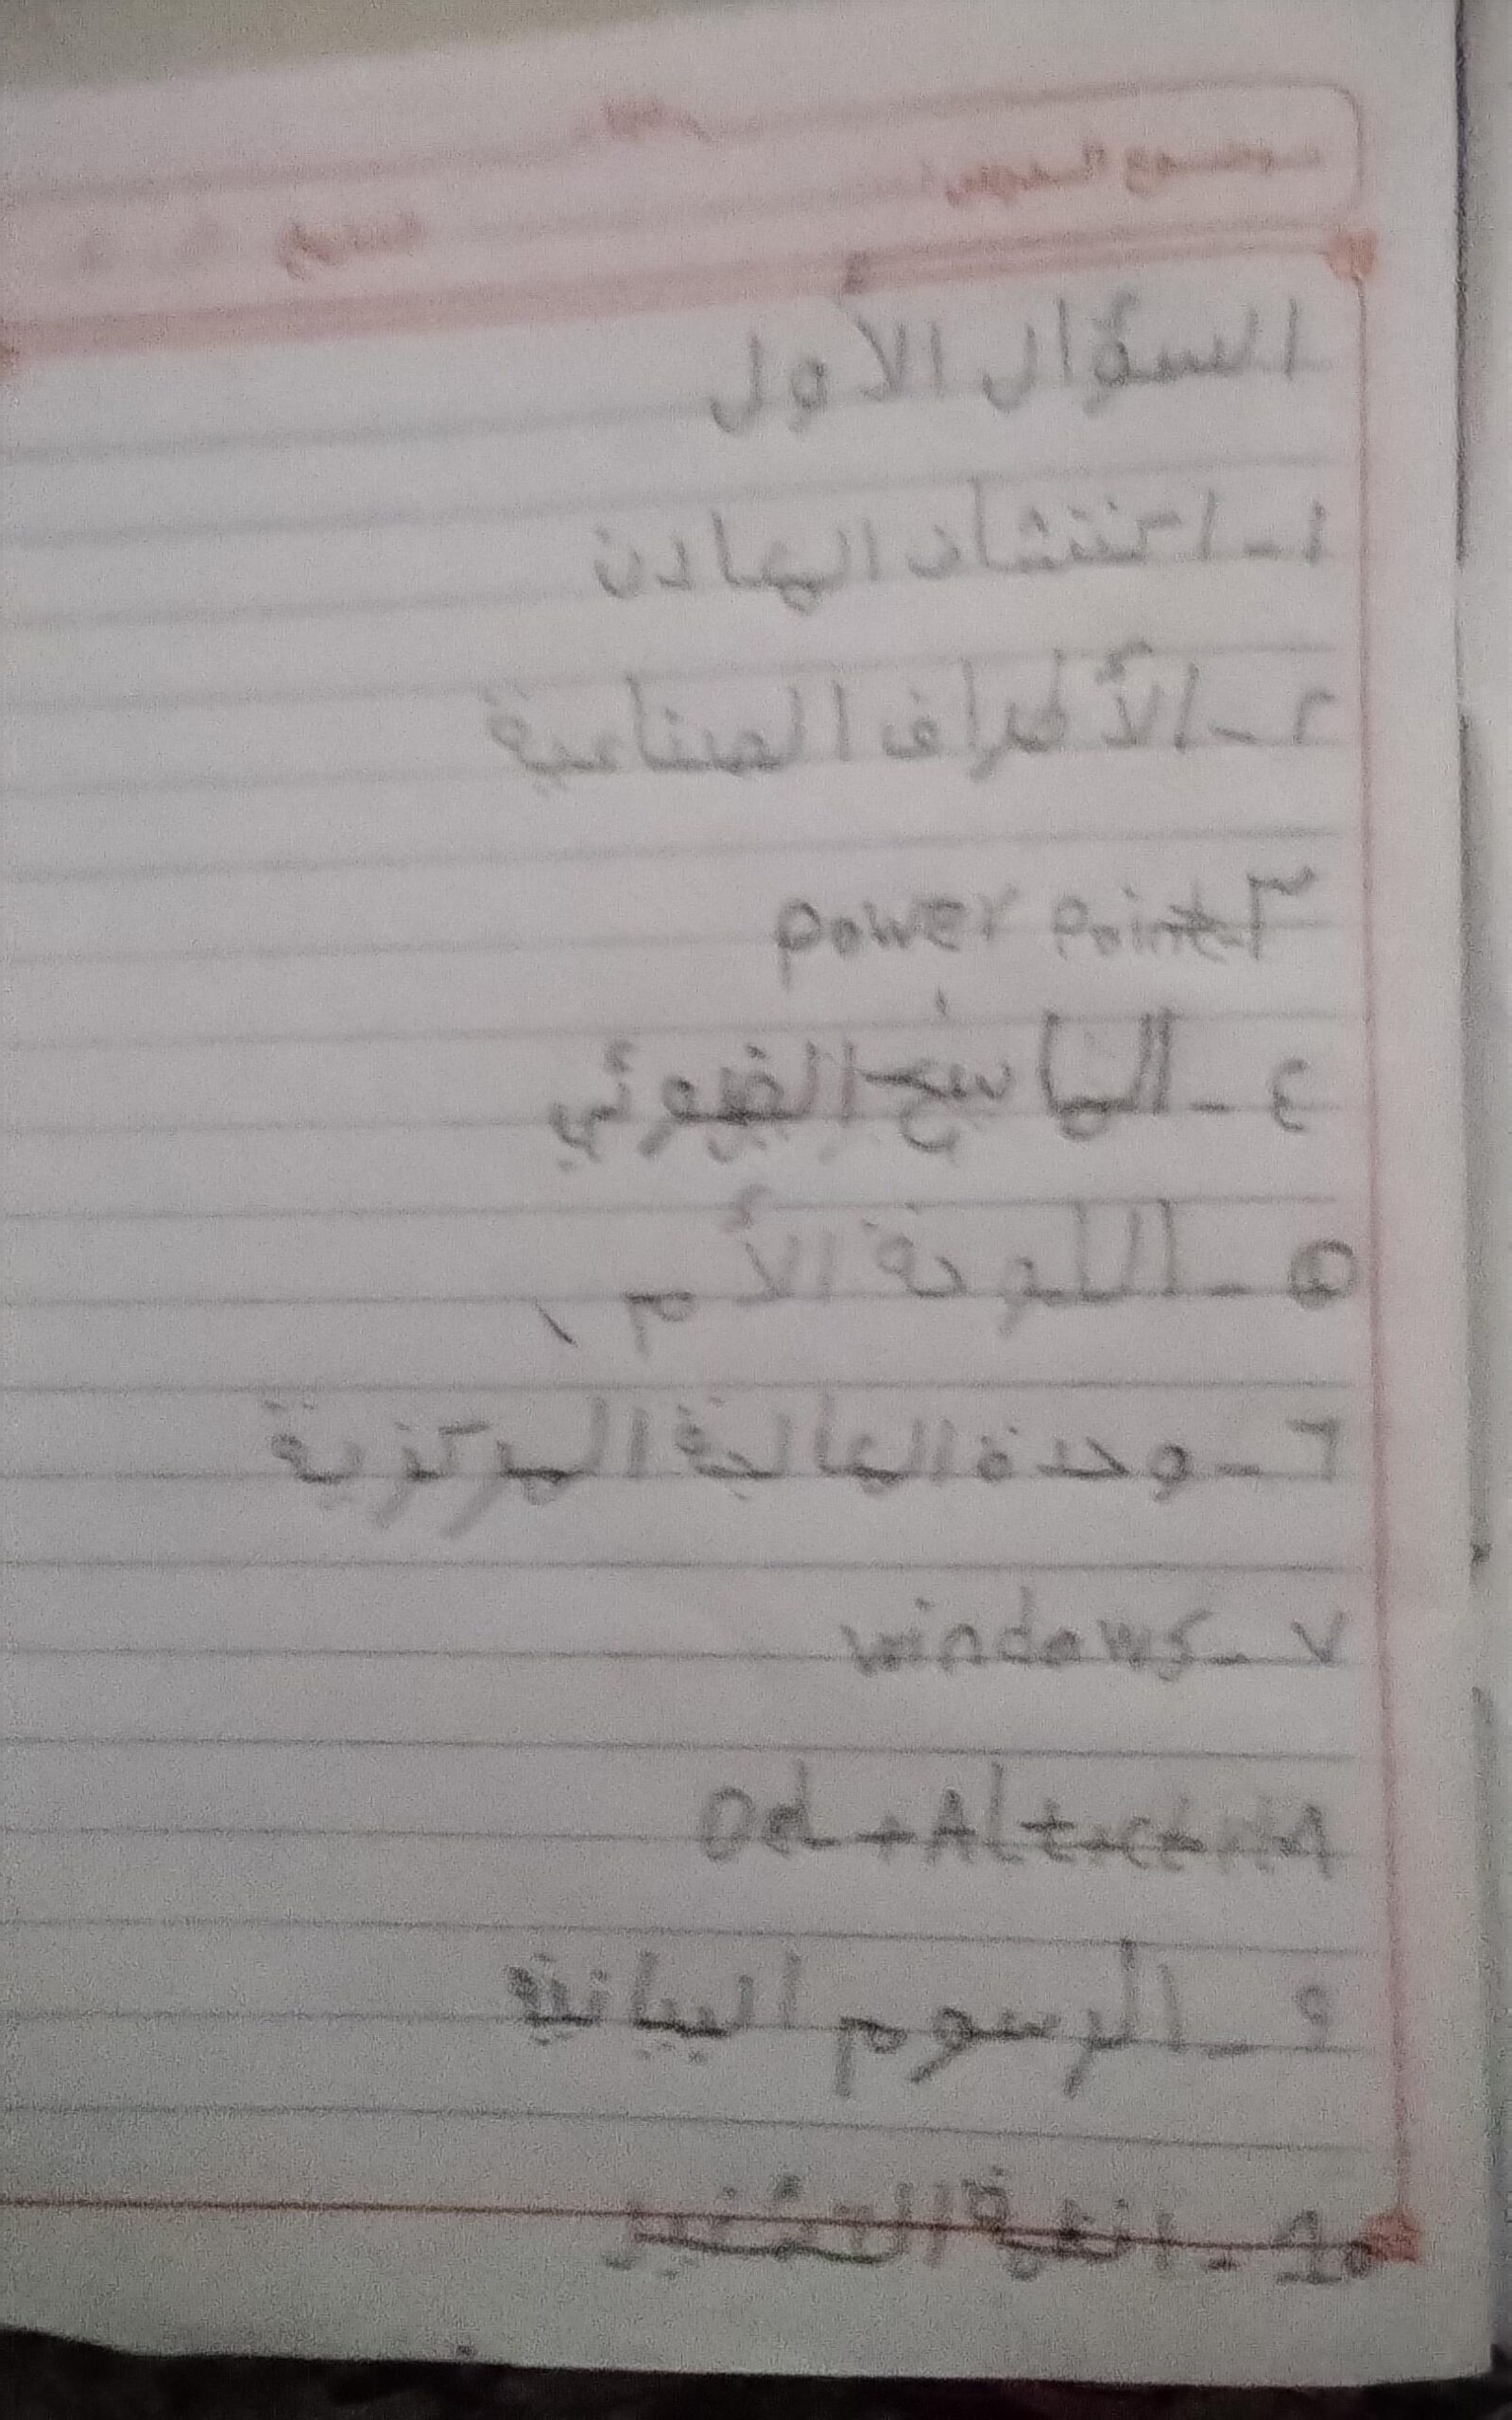 موضوع الدرس
التاريخ
السؤال الأول
١- اكتشاف المعادن
٢- الأطراف الصناعية
٣- power point
٤- الماسح الضوئي
٥- اللوحة الأم
٦- وحدة المعالجة المركزية
٧- windows
٨- Del + Alt + ctrl
٩- الرسوم البيانية
10-